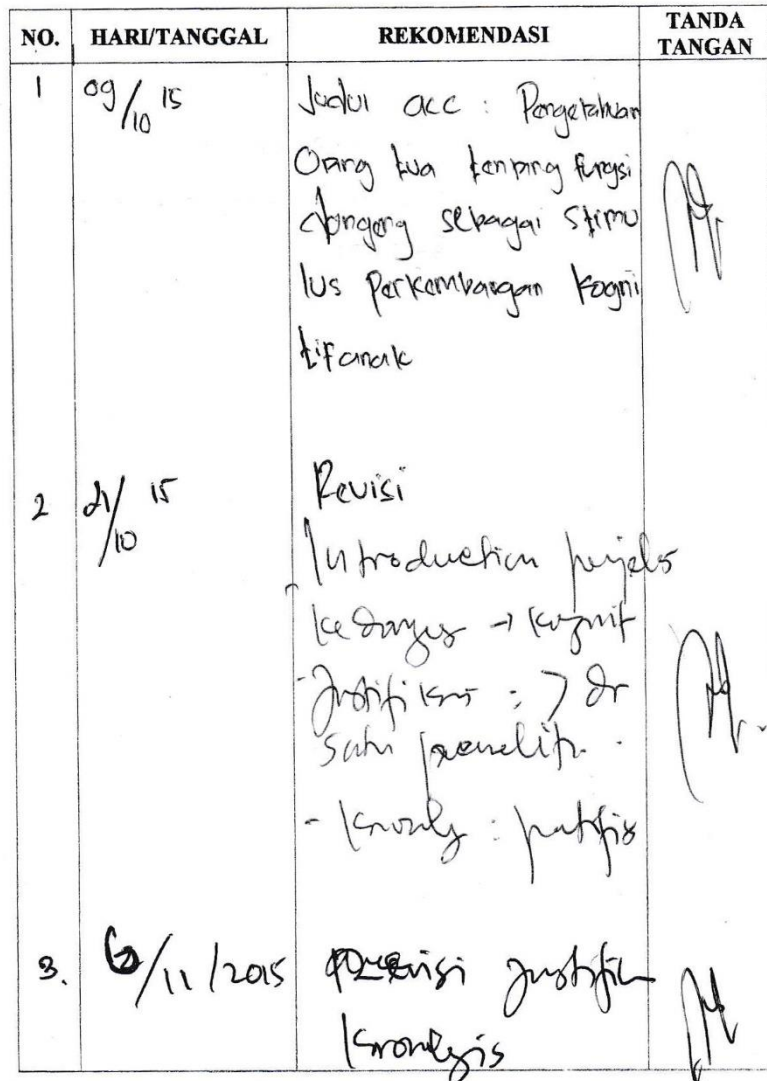 NO. HARI/TANGGAL REKOMENDASI TANDA TANGAN
1 09/10 15 Judul acc : Pengetahuan
Orang tua tentang fungsi
dongeng sebagai Stimu
lus Perkembangan kogni
tif anak
2 21/10 15 Revisi
Introduction
→ kognit
- Justifikasi : > dr
satu penelit
3. 6/11/2015 Revisi Justifik
Kronologis